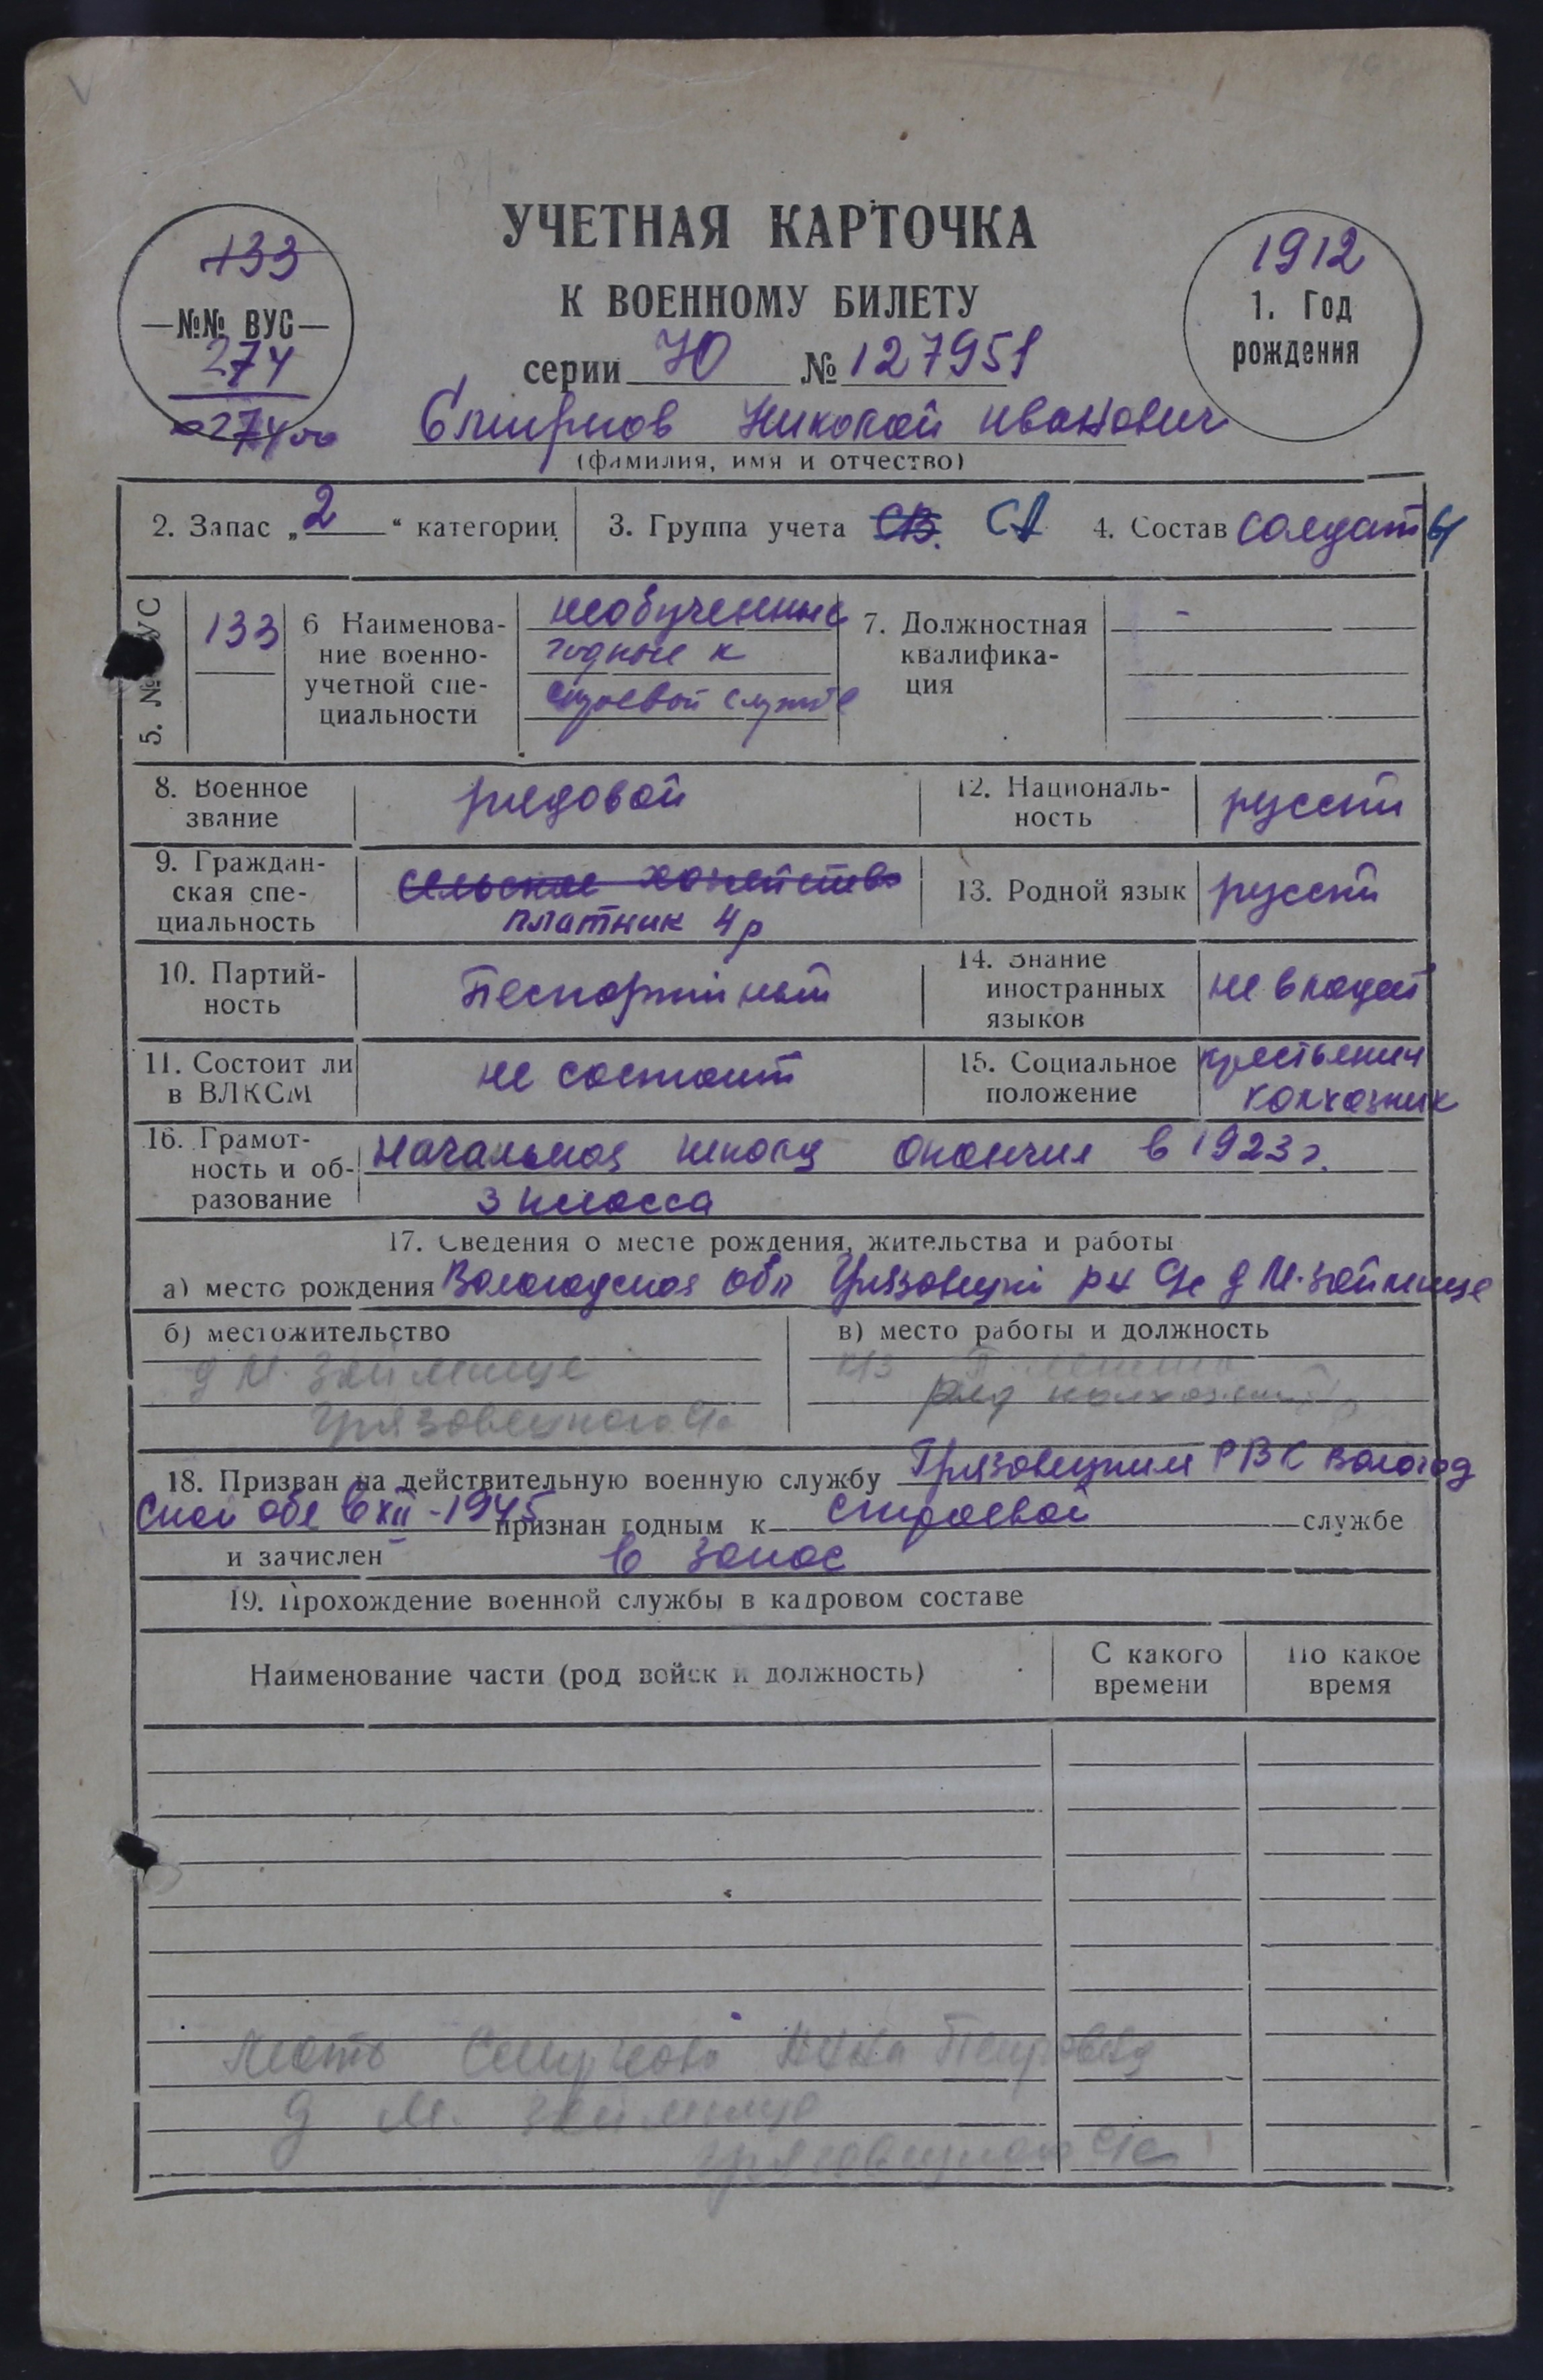 УЧЕТНАЯ КАРТОЧКА
К ВОЕННОМУ БИЛЕТУ
серии Ю № 127951
133
—№№ ВУС—
274
274
1912
1. Год
рождения
Смирнов Николай Иванович
(фамилия, имя и отчество)
2. Запас „2“ категории
3. Группа учета СВ. СА
4. Состав солдаты
5. № ВУС 133
6 Наименова-
ние военно-
учетной спе-
циальности
необученные
годные к
строевой службе
7. Должностная
квалифика-
ция
-
8. Военное
звание
рядовой
12. Националь-
ность
русский
9. Граждан-
ская спе-
циальность
сельское хозяйство
платник 4р
13. Родной язык русский
10. Партий-
ность
беспартийный
14. Знание
иностранных
языков
не владеет
11. Состоит ли
в ВЛКСМ
не состоит
15. Социальное
положение
крестьянин
колхозник
16. Грамот-
ность и об-
разование
Начальная школу окончил в 1923 г.
3 класса
17. Сведения о месте рождения, жительства и работы
а) место рождения Вологодская обл Грязовецкий р-н д М. Займище
б) местожительство
д М. Займище
Грязовецкого
в) место работы и должность
ряд
18. Призван на действительную военную службу Грязовецким РВК Вологод
ской обл в XII-1945 признан годным к строевой службе
и зачислен в запас
19. Прохождение военной службы в кадровом составе
Наименование части (род войск и должность)
С какого
времени
По какое
время
Мать Смирнова Петровна
д М. Займище